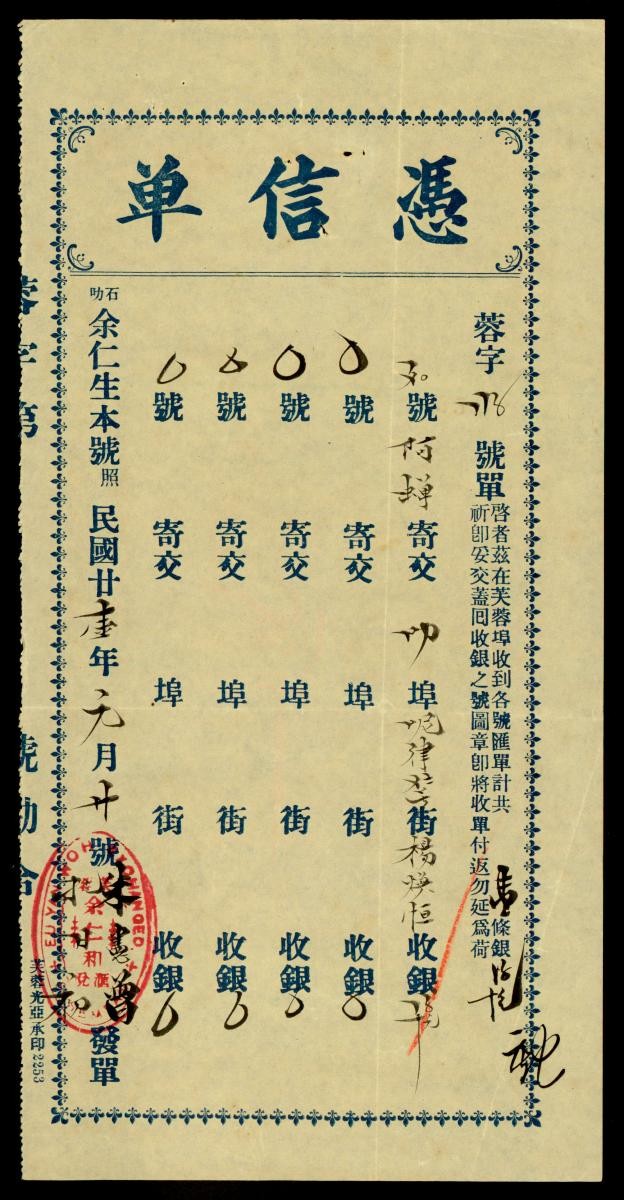 憑信单
蓉字 號單
啓者茲在芙蓉埠收到各號匯單計共 壹條銀
祈卽妥交蓋囘收銀之號圖章卽將收單付返勿延爲荷
號 阿蟬 寄交 叻 埠 律 街 楊煥恒 收銀
〇 號 寄交 埠 街 收銀 〇
〇 號 寄交 埠 街 收銀 〇
〇 號 寄交 埠 街 收銀 〇
〇 號 寄交 埠 街 收銀 〇
石叻 余仁生本號照 民國廿壹年元月廿號 朱 曾 發單
EU YAN
余仁和
匯兌
芙蓉光亞承印2253
蓉字第 號